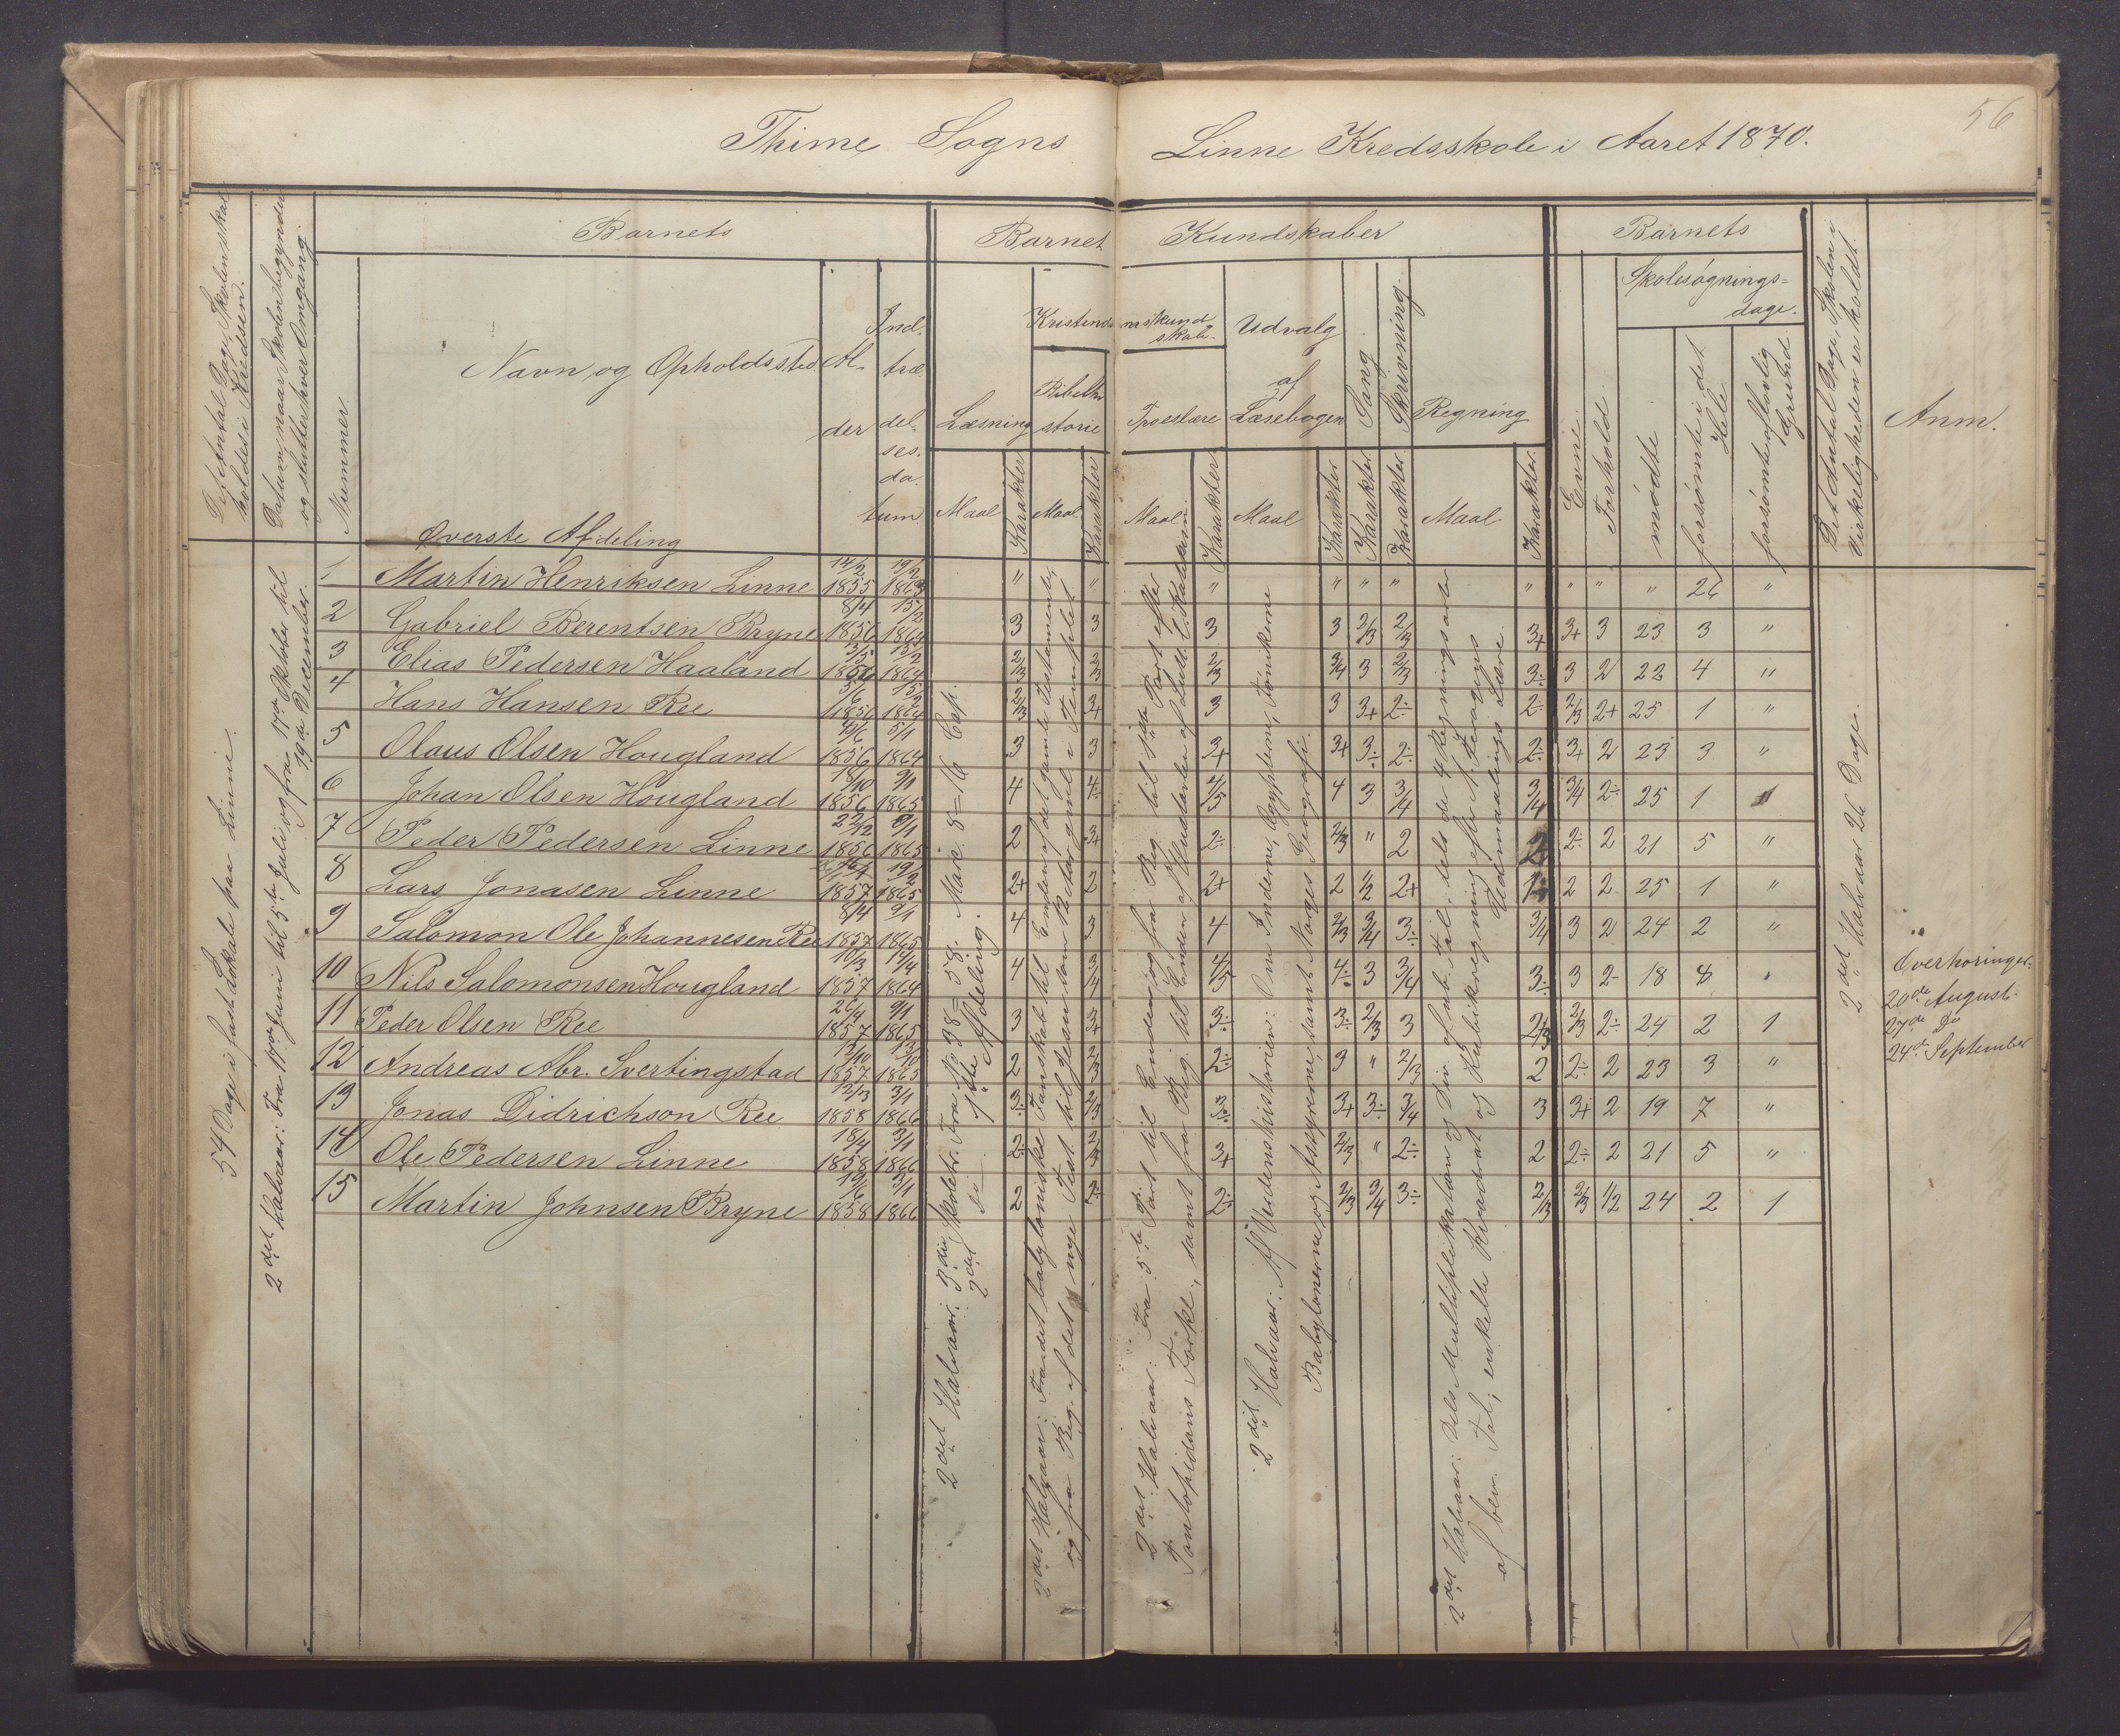 56
Thime Sogns Linne Kredsskole i Aaret 1870.
Det Antal Dage, Skolen skal
holdes i Kredsen.
Datum, naar Skolen begynder
og slutter hver Omgang.
Barnets
Barnets Kundskaber
Barnets
Det Antal Dage, Skolen i
Virkeligheden er holdt.
Anm.
Nummer
Navn og Opholdssted
Al-
der
Ind-
træ
del-
ses-
da-
tum
Læsning
Kristendomskund
skab.
Bibelhi
storie
Troeslære
Udvalg
af
Læsebogen
Sang
Skrivning.
Regning
Evne
Forhold.
Skolesøgnings=
dage.
mødte
forsømte i det
Hele
forsømte af lovlig
Grund
Maal Karakter Maal Karakter Maal Karakter Maal Karakter Karakter Karakter Maal Karakter
Øverste Afdeling
1 Martin Henriksen Linne 14/2 1855 19/2 1863 " " " " " " " " " " 26 "
2 Gabriel Berentsen Bryne 8/4 1856 15/2 1864 3 3 3 3 2/3 2/3 3+ 3+ 3 23 3 "
3 Elias Pedersen Haaland 13/5 1856 15/2 1864 2/3 2/3 2/3 3/4 3 2/3 3÷ 3 2 22 4 "
4 Hans Hansen Ree 5/6 1856 15/2 1864 2/3 3+ 3 3 3+ 2÷ 2÷ 2/3 2+ 25 1 "
5 Olaus Olsen Hougland 1856 5/1 1864 3 3 3+ 3+ 3÷ 2÷ 2÷ 3+ 2 23 3 "
6 Johan Olsen Hougland 18/10 1856 9/1 1865 4 4÷ 4/5 4 3 3/4 3/4 3/4 2÷ 25 1
7 Peder Pedersen Linne 22/12 1856 9/1 1865 2 3+ 2÷ 2/3 " 2 2 2÷ 2 21 5 "
8 Lars Jonasen Linne 1857 19/2 1865 2+ 2 2+ 2 1/2 2+ 2 2 25 1 "
9 Salomon Ole Johannesen Ree 8/4 1857 9/1 1865 4 3 4 2/3 3/4 3÷ 3/4 3 2 24 2 "
10 Nils Salomonsen Hougland 10/3 1857 1864 4 3/4 4/5 4÷ 3 3/4 3÷ 3 2÷ 18 8 "
11 Peder Olsen Ree 26/4 1857 9/1 1865 3 3+ 3÷ 3÷ 2/3 3 2/3 2/3 2÷ 24 2 1
12 Andreas Abr. Svertingstad 12/10 1857 1865 2 2/3 2÷ 3 " 2/3 2 2÷ 2 23 3 "
13 Jonas Didrichson Ree 12/3 1858 3/1 1866 3÷ 2/3 3÷ 3+ 3÷ 3/4 3 3+ 2 19 7 "
14 Ole Pedersen Linne 18/4 1858 3/1 1866 2÷ 2/3 3+ 2/3 " 2÷ 2 2÷ 2 21 5 "
15 Martin Johnsen Bryne 19/6 1858 3/1 1866 2 2÷ 2÷ 2/3 3/4 3÷ 2/3 2/3 1/2 24 2 1
54 Dage i fast Lokale paa Linne.
2det Halvaar: Fra 17de Juni til 5te Juli og fra 17de Oktober til
19de December.
2det Halvaar: 3die Skoletr. Fra No 38=58. Marc. 8=16 Cap.
2det di 1ste Afdeling.
2det Halvaar: Fra det babyloniske Fangenskab til Enden af det gamle Testamente,
og fra Beg. af det nye Test. til Jesu 12 Aar gml. i Templet.
2det Halvaar: Fra 5te Part til Enden, og fra Beg. til 1ste Part efter
Pontoppidans Forkl., samt fra Beg. til Enden af Sludstanter af Luth. l. Katekism.
2det Halvaar: Af Verdenshistorien: Om Inderne, Ægypterne, Fønikerne
Babylonerne, og Assyrerne, samt Norges Geografi.
2det Halvaar: Dels Multiplikation og Div. af ub. Tal, dels de 4 Regningsarter
af ben. Tal; enkelte Kvadrat og Kubikregning efter
Udmaalings Lære.
2det Halvaar 26 Dage.
Overhøringer:
20de August.
27de Do
24de September